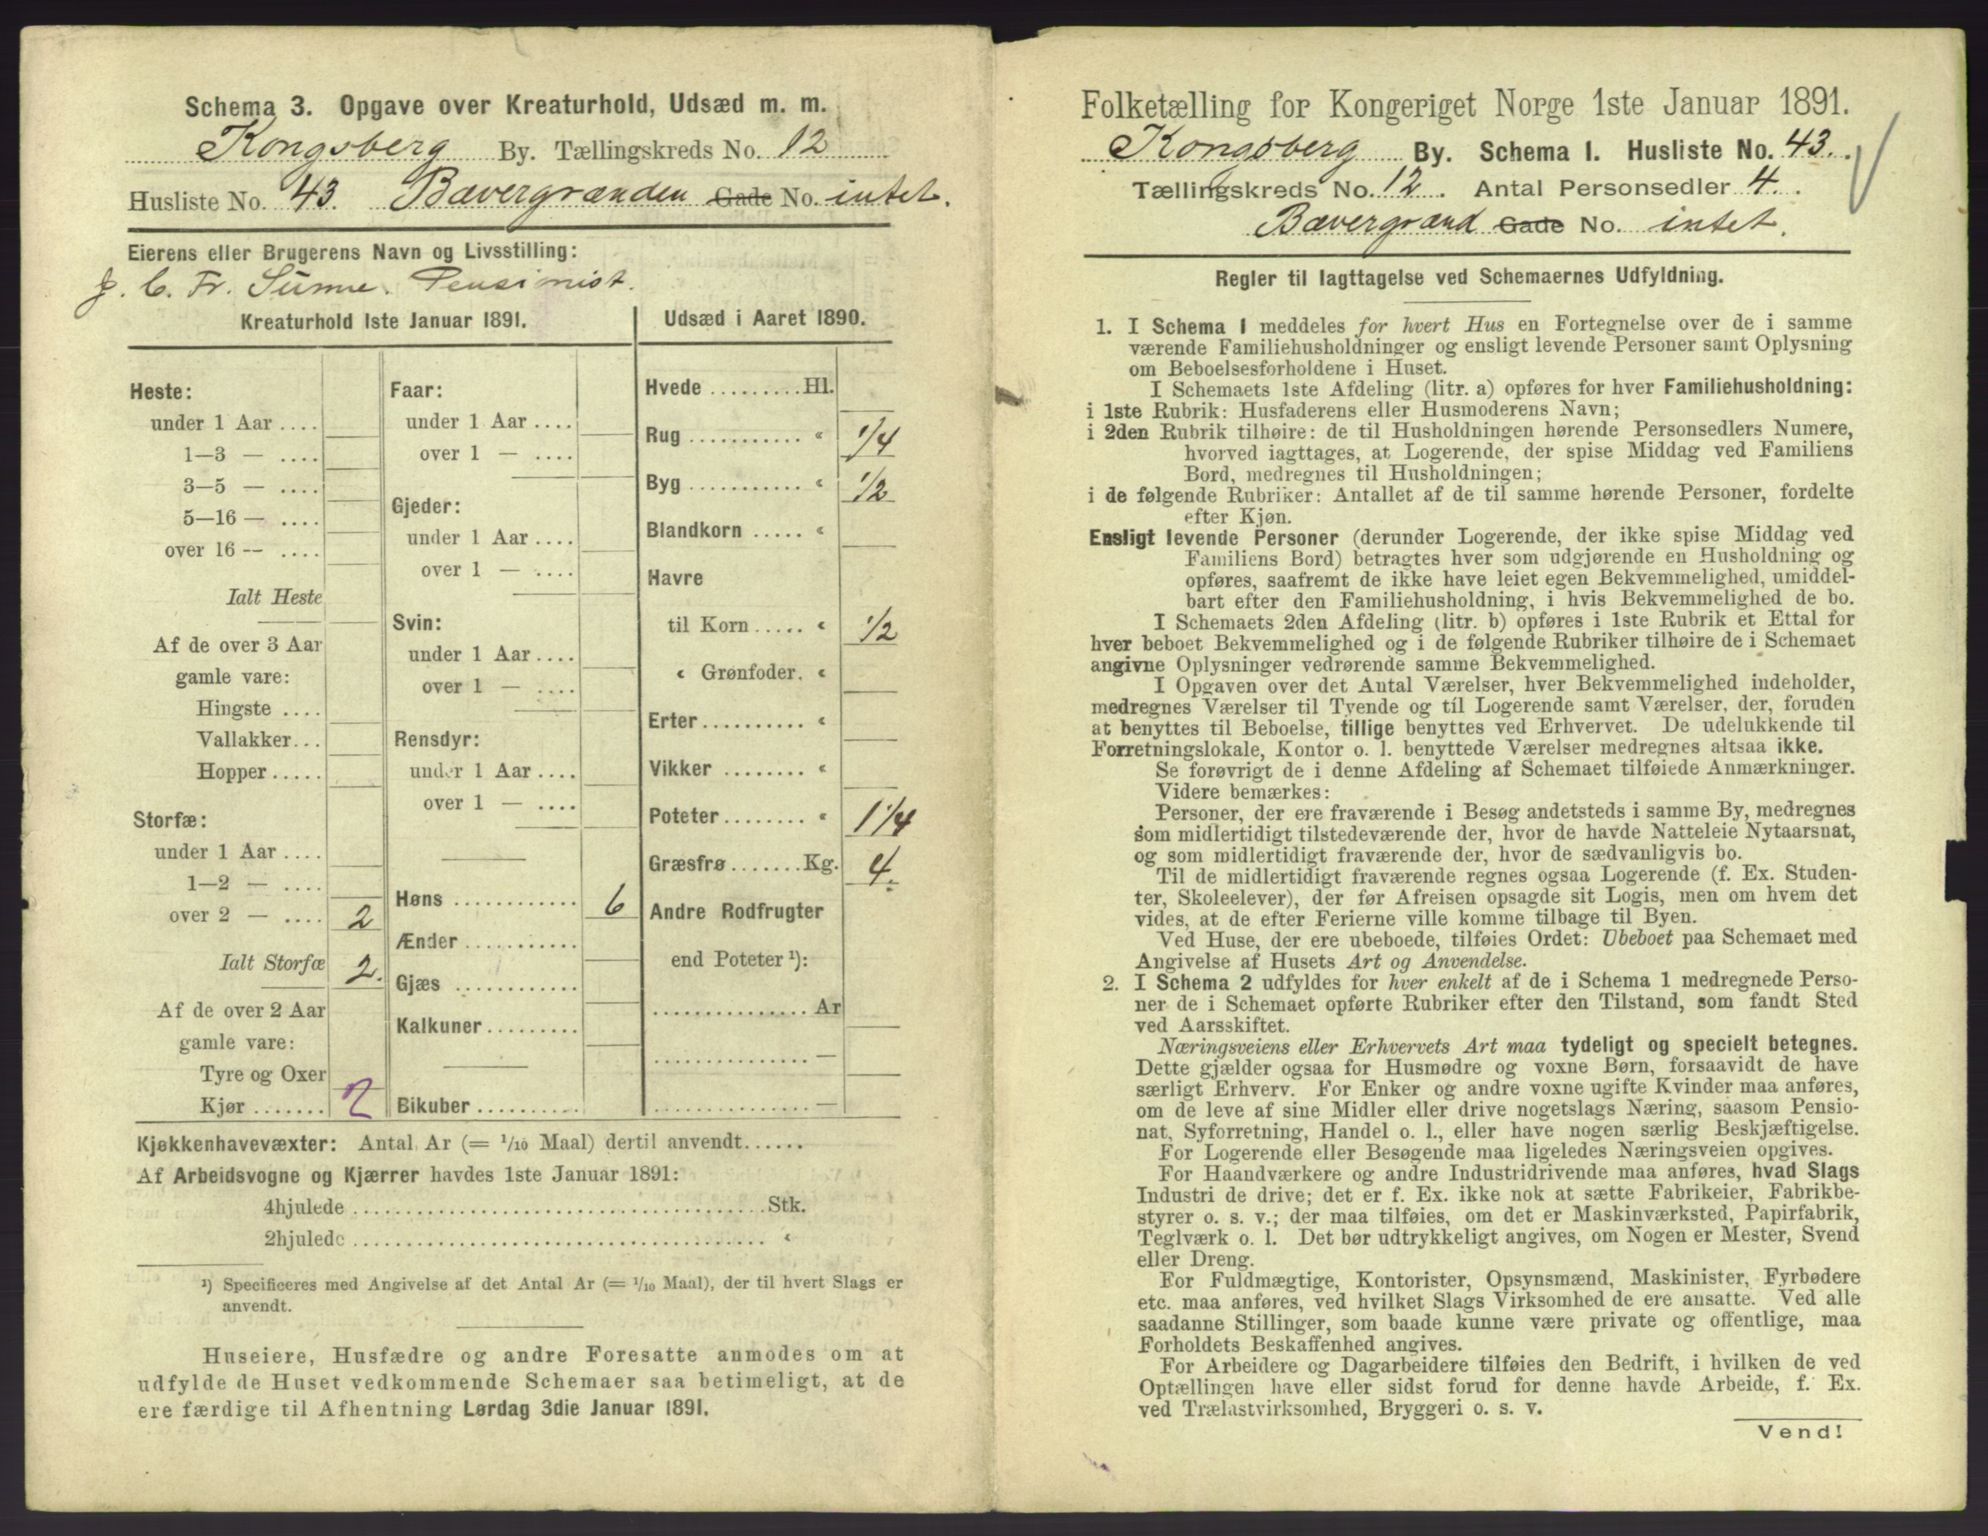 Schema 3. Opgave over Kreaturhold, Udsæd m. m.
Kongsberg By. Tællingskreds No. 12
Husliste No. 43. Bævergrænden Gade No. intet.
Eierens eller Brugerens Navn og Livsstilling:
J. C. Fr. Sunne. Pensionist.
Kreaturhold 1ste Januar 1891.
Heste:
under 1 Aar ....
1—3 — ....
3—5 — ....
5—16 — ....
over 16 -- ....
Ialt Heste
Af de over 3 Aar
gamle vare:
Hingste ....
Vallakker...
Hopper.....
Storfæ:
under 1 Aar ....
1—2 — ....
over 2 — .... 2
Ialt Storfæ 2.
Af de over 2 Aar
gamle vare:
Tyre og Oxer
Kjør ....... 2
Faar:
under 1 Aar ....
over 1 — ....
Gjeder:
under 1 Aar ....
over 1 — ....
Svin:
under 1 Aar ....
over 1 — ....
Rensdyr:
under 1 Aar ....
over 1 — ....
Høns ............ 6
Ænder ...........
Gjæs ............
Kalkuner.........
Bikuber ..........
Udsæd i Aaret 1890.
Hvede .........Hl.
Rug ........... « 1/4
Byg ............ « 1/2
Blandkorn ..... «
Havre
til Korn ..... « 1/2
« Grønfoder. «
Erter.......... «
Vikker ........ «
Poteter........ « 1 1/4
Græsfrø.......Kg. 4.
Andre Rodfrugter
end Poteter ¹):
............... Ar
............... —
............... —
Kjøkkenhavevæxter: Antal Ar (= 1/10 Maal) dertil anvendt......
Af Arbeidsvogne og Kjærrer havdes 1ste Januar 1891:
4hjulede ........................................Stk.
2hjulede ........................................ «
¹) Specificeres med Angivelse af det Antal Ar (= 1/10 Maal), der til hvert Slags er
anvendt.
Huseiere, Husfædre og andre Foresatte anmodes om at
udfylde de Huset vedkommende Schemaer saa betimeligt, at de
ere færdige til Afhentning Lørdag 3die Januar 1891.
Folketælling for Kongeriget Norge 1ste Januar 1891.
Kongsberg By. Schema 1. Husliste No. 43.
Tællingskreds No. 12. Antal Personsedler 4.
Bævergrænd Gade No. intet.
Regler til Iagttagelse ved Schemaernes Udfyldning.
1. I Schema 1 meddeles for hvert Hus en Fortegnelse over de i samme
værende Familiehusholdninger og ensligt levende Personer samt Oplysning
om Beboelsesforholdene i Huset.
I Schemaets 1ste Afdeling (litr. a) opføres for hver Familiehusholdning:
i 1ste Rubrik: Husfaderens eller Husmoderens Navn;
i 2den Rubrik tilhøire: de til Husholdningen hørende Personsedlers Numere,
hvorved iagttages, at Logerende, der spise Middag ved Familiens
Bord, medregnes til Husholdningen;
i de følgende Rubriker: Antallet af de til samme hørende Personer, fordelte
efter Kjøn.
Ensligt levende Personer (derunder Logerende, der ikke spise Middag ved
Familiens Bord) betragtes hver som udgjørende en Husholdning og
opføres, saafremt de ikke have leiet egen Bekvemmelighed, umiddel-
bart efter den Familiehusholdning, i hvis Bekvemmelighed de bo.
I Schemaets 2den Afdeling (litr. b) opføres i 1ste Rubrik et Ettal for
hver beboet Bekvemmelighed og i de følgende Rubriker tilhøire de i Schemaet
angivne Oplysninger vedrørende samme Bekvemmelighed.
I Opgaven over det Antal Værelser, hver Bekvemmelighed indeholder,
medregnes Værelser til Tyende og til Logerende samt Værelser, der, foruden
at benyttes til Beboelse, tillige benyttes ved Erhvervet. De udelukkende til
Forretningslokale, Kontor o. l. benyttede Værelser medregnes altsaa ikke.
Se forøvrigt de i denne Afdeling af Schemaet tilføiede Anmærkninger.
Videre bemærkes:
Personer, der ere fraværende i Besøg andetsteds i samme By, medregnes
som midlertidigt tilstedeværende der, hvor de havde Natteleie Nytaarsnat,
og som midlertidigt fraværende der, hvor de sædvanligvis bo.
Til de midlertidigt fraværende regnes ogsaa Logerende (f. Ex. Studen-
ter, Skoleelever), der før Afreisen opsagde sit Logis, men om hvem det
vides, at de efter Ferierne ville komme tilbage til Byen.
Ved Huse, der ere ubeboede, tilføies Ordet: Ubeboet paa Schemaet med
Angivelse af Husets Art og Anvendelse.
2. I Schema 2 udfyldes for hver enkelt af de i Schema 1 medregnede Perso-
ner de i Schemaet opførte Rubriker efter den Tilstand, som fandt Sted
ved Aarsskiftet.
Næringsveiens eller Erhvervets Art maa tydeligt og specielt betegnes.
Dette gjælder ogsaa for Husmødre og voxne Børn, forsaavidt de have
særligt Erhverv. For Enker og andre voxne ugifte Kvinder maa anføres,
om de leve af sine Midler eller drive nogetslags Næring, saasom Pensio-
nat, Syforretning, Handel o. l., eller have nogen særlig Beskjæftigelse.
For Logerende eller Besøgende maa ligeledes Næringsveien opgives.
For Haandværkere og andre Industridrivende maa anføres, hvad Slags
Industri de drive; det er f. Ex. ikke nok at sætte Fabrikeier, Fabrikbe-
styrer o. s. v.; der maa tilføies, om det er Maskinværksted, Papirfabrik,
Teglværk o. l. Det bør udtrykkeligt angives, om Nogen er Mester, Svend
eller Dreng.
For Fuldmægtige, Kontorister, Opsynsmænd, Maskinister, Fyrbødere
etc. maa anføres, ved hvilket Slags Virksomhed de ere ansatte. Ved alle
saadanne Stillinger, som baade kunne være private og offentlige, maa
Forholdets Beskaffenhed angives.
For Arbeidere og Dagarbeidere tilføies den Bedrift, i hvilken de ved
Optællingen have eller sidst forud for denne havde Arbeide, f. Ex.
ved Trælastvirksomhed, Bryggeri o. s. v.
Vend!